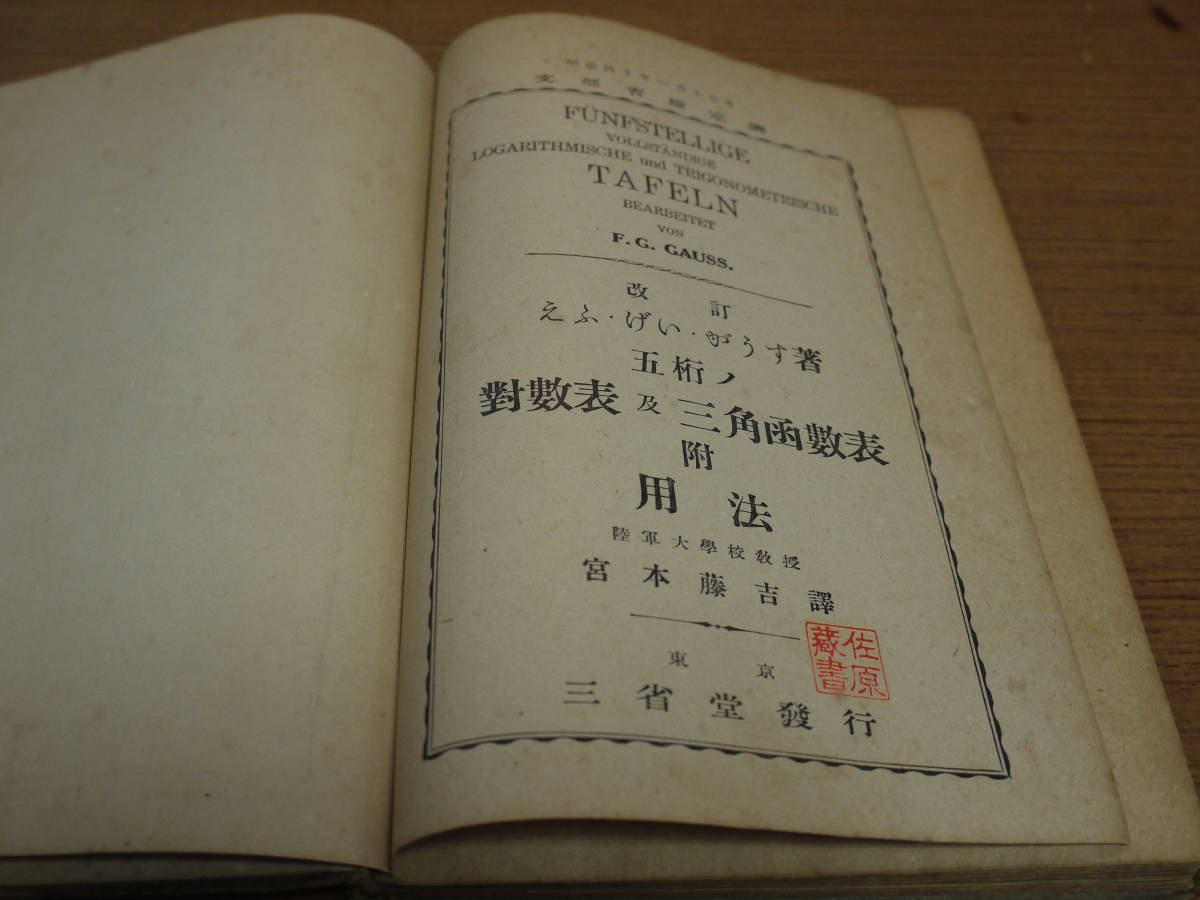 明治四十年一月十七日
文部省檢定濟
FÜNFSTELLIGE
VOLLSTÄNDIGE
LOGARITHMISCHE und TRIGONOMETRISCHE
TAFELN
BEARBEITET
VON
F. G. GAUSS.
改訂
えふ・げい・がうす著
五桁ノ
對數表及三角函數表
附
用法
陸軍大學校敎授
宮本藤吉譯
東京
三省堂發行
佐原
藏書